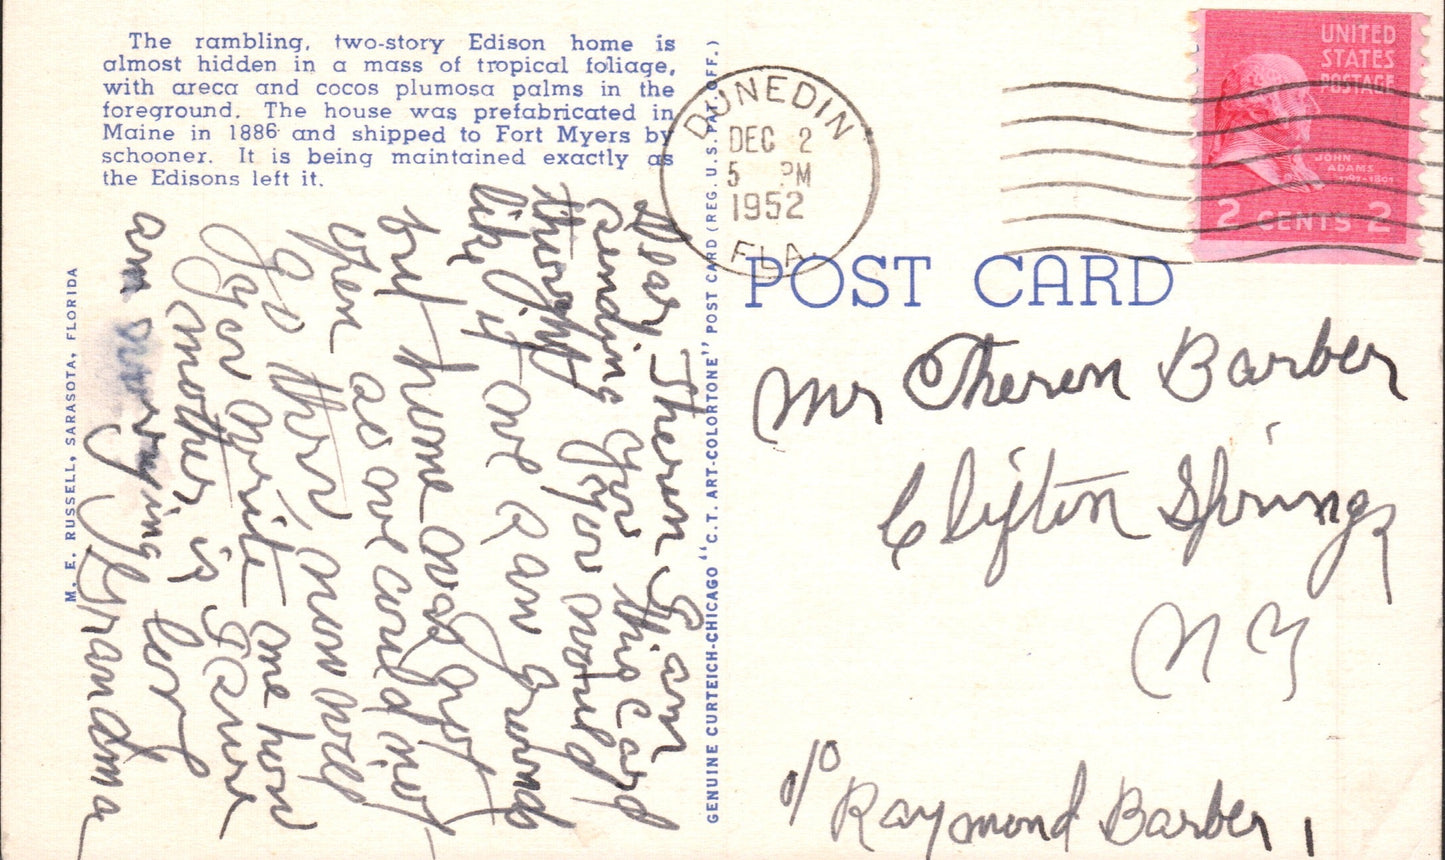 The rambling, two-story Edison home is
almost hidden in a mass of tropical foliage,
with areca and cocos plumosa palms in the
foreground. The house was prefabricated in
Maine in 1886 and shipped to Fort Myers by
schooner. It is being maintained exactly as
the Edisons left it.
M. E. RUSSELL, SARASOTA, FLORIDA
GENUINE CURTEICH-CHICAGO "C. T. ART-COLORTONE" POST CARD (REG. U. S. PAT. OFF.)
DUNEDIN
DEC 2
5 PM
1952
FLA
UNITED
STATES
POSTAGE
JOHN
ADAMS
1797-1801
2 CENTS 2
POST CARD
Mr Theren Barber
Clifton Springs
N Y
c/o Raymond Barber
Dear Theren I am
sending you this card
thought you would
like it we Ran around
but home was not
open as we could not
go thru now will
you write me how
mother is
am worrying love
Grandma